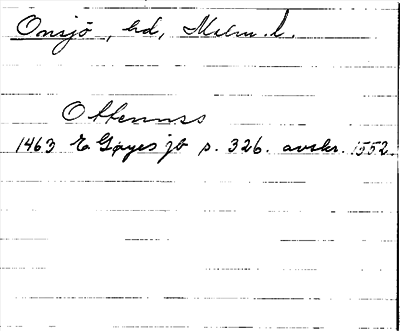 Onsjö, hd, Malm. l.
Ottennss
1463 E Gøyes jb s. 326. avskr. 1552.